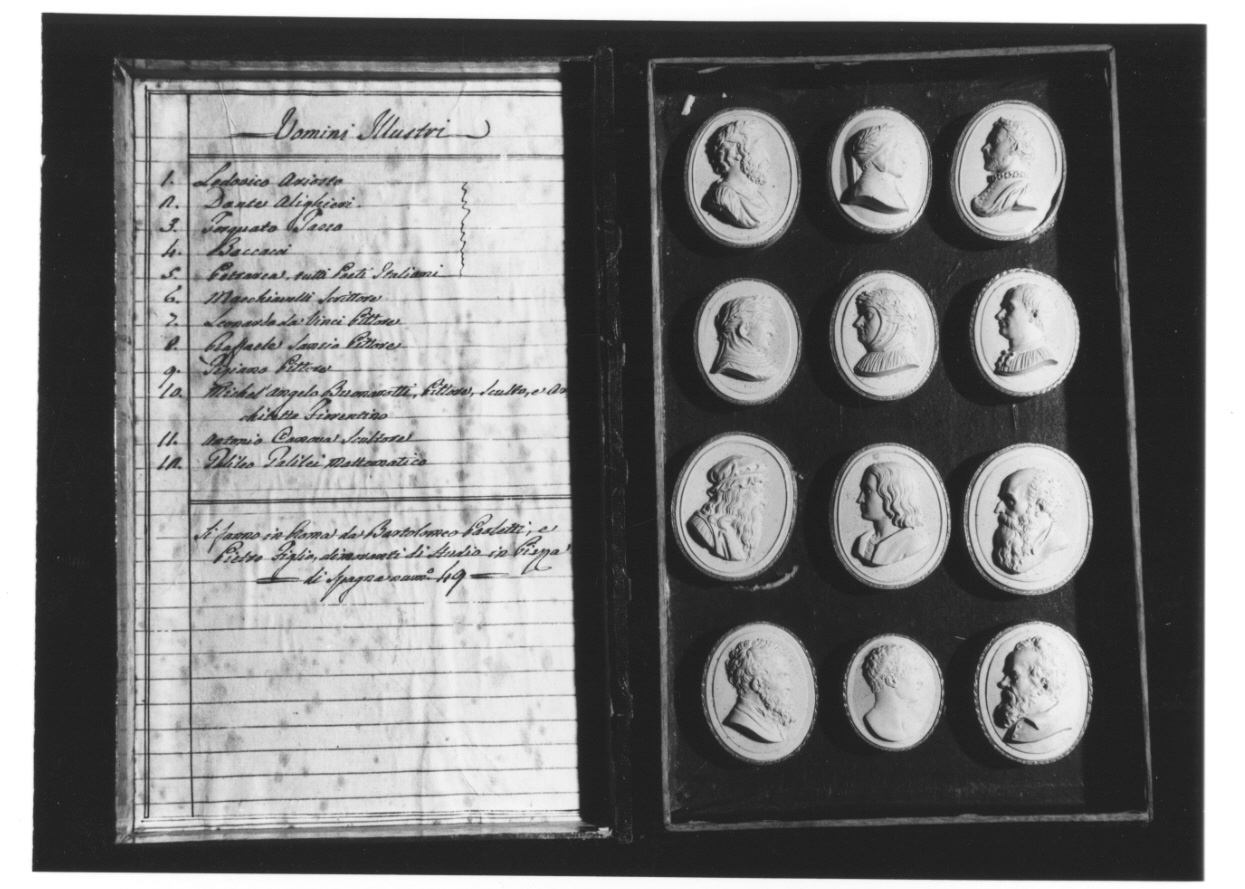 Uomini Illustri
1. Lodovico Ariosto
2. Dante Alighieri
3. Torquato Tasso
4. Boccacci
5. Petrarca, tutti Poeti Italiani
6. Macchiavelli Scrittore
7. Leonardo da Vinci Pittore
8. Raffaele Sanzio Pittore
9. Tiziano Pittore
10. Michel'angelo Buonarotti, Pittore, Sculto, e Ar
chitetto Fiorentino
11. Antonio Canova Scultore
12. Galileo Galilei Mattematico
Si fanno in Roma da Bartolomeo Paoletti, e
Pietro Figlio, dimoranti di Studio in Piazza
di Spagna num.o 49